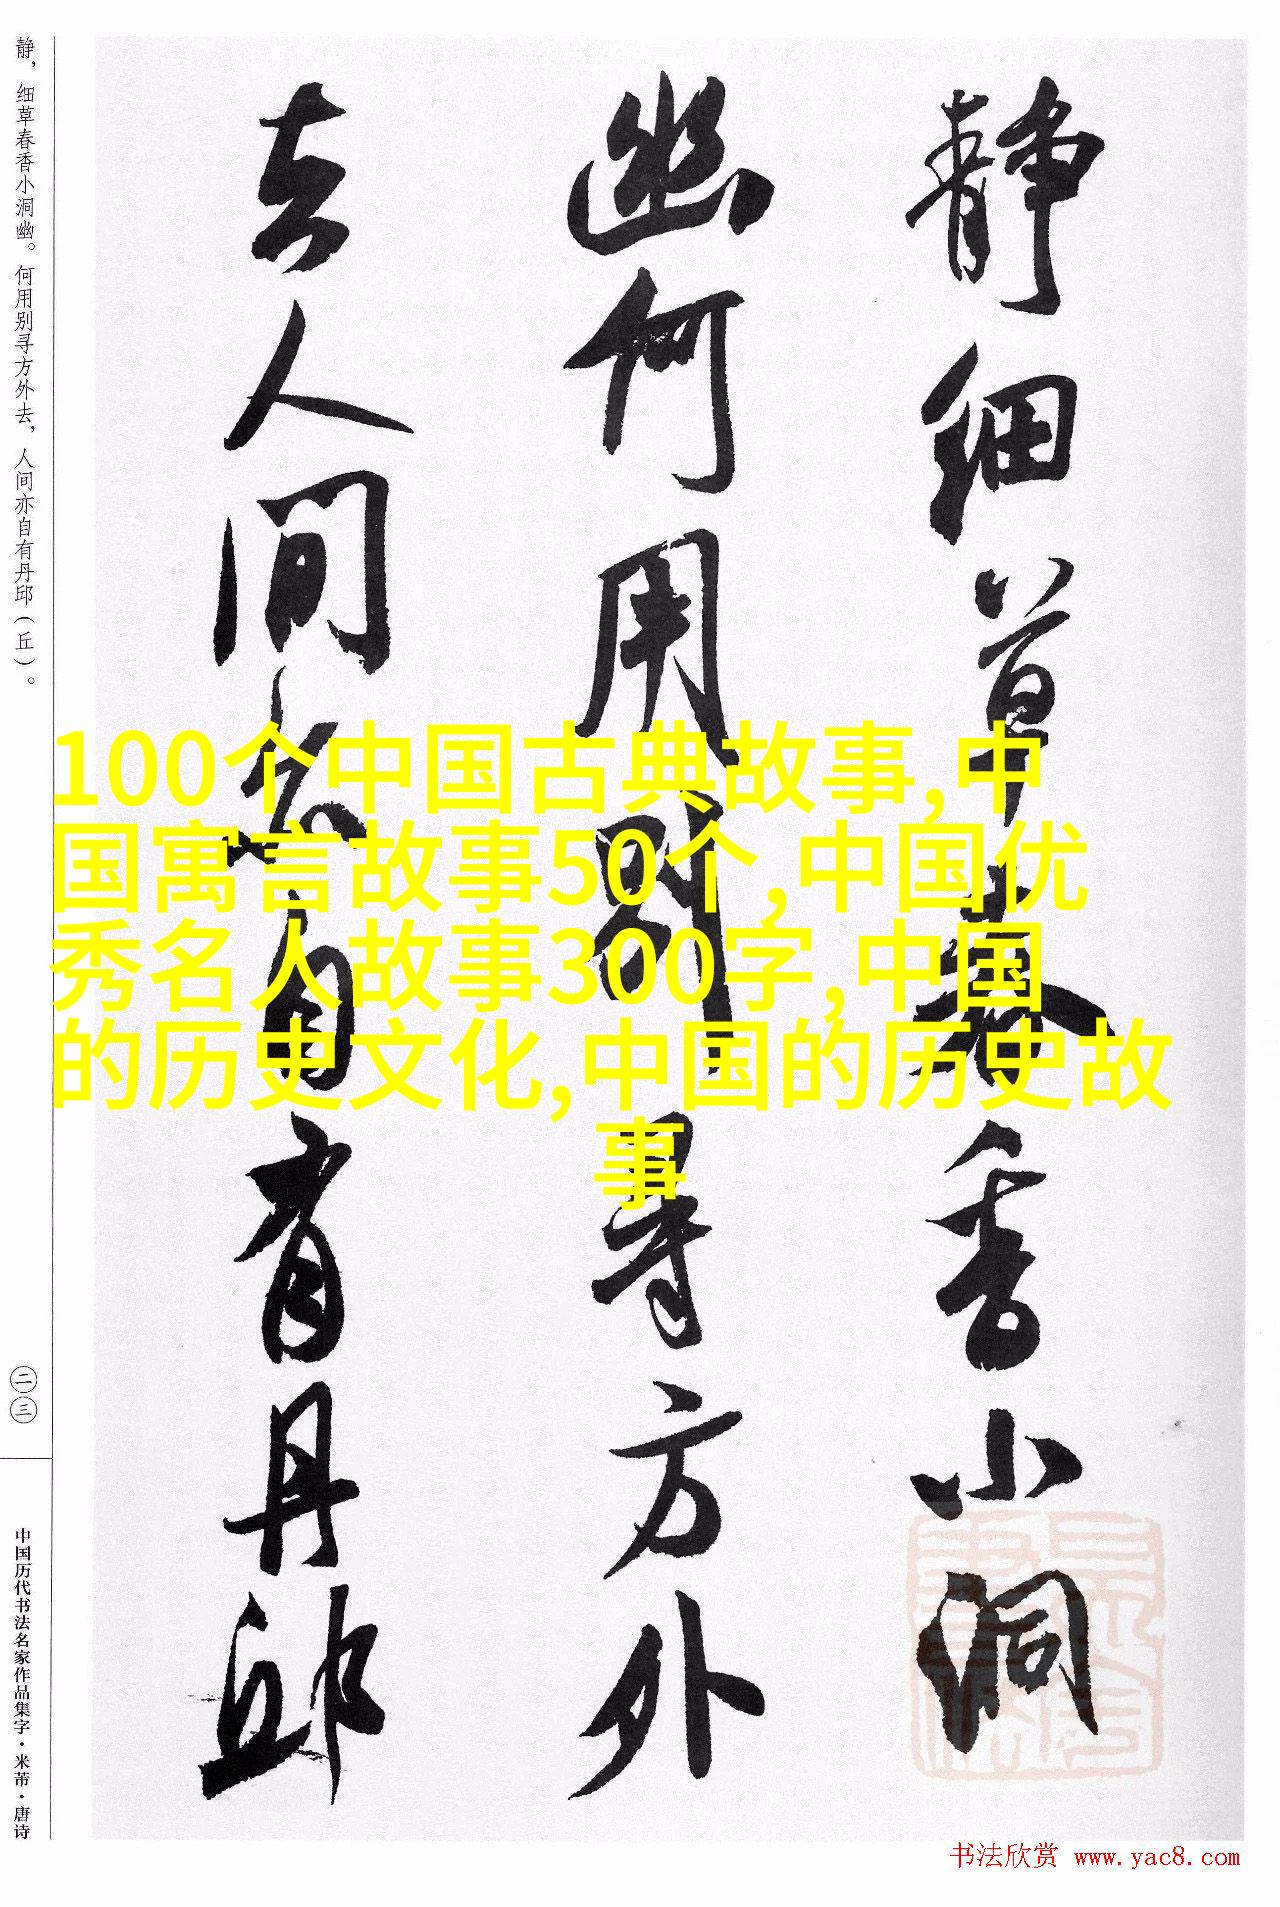 静细草春香小洞
幽何用别寻方外
去人间亦自有丹邱
静，细草春香小洞幽。何用别寻方外去，人间亦自有丹邱（丘）。
二三
中国历代书法名家作品集字·米芾·唐诗
100个中国古典故事,中
国寓言故事50个,中国优
秀名人故事300字,中国
的历史文化,中国的历史故
事
书法欣赏 www.yac8.com